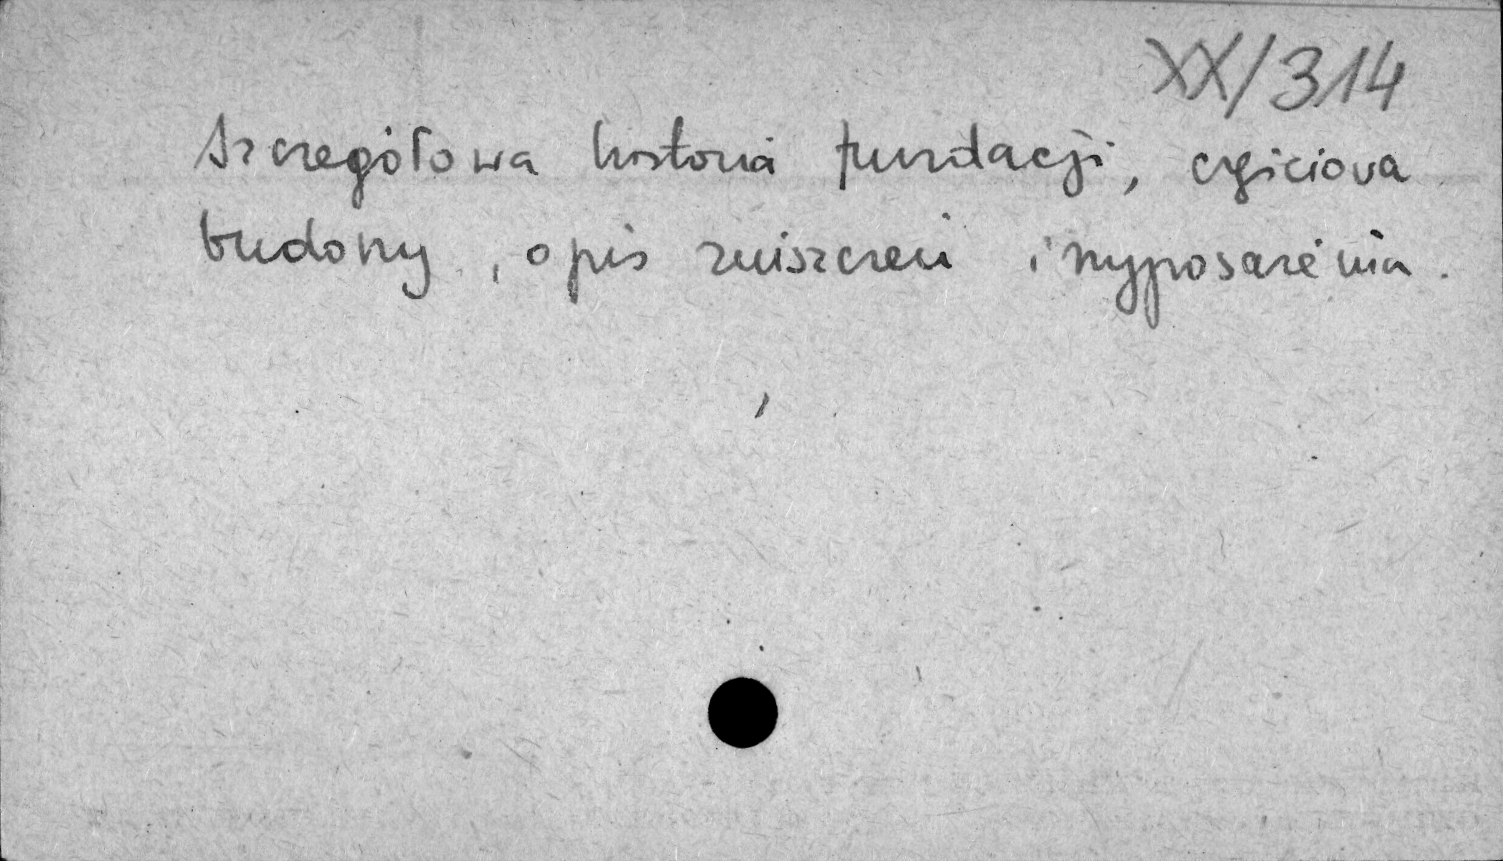 XX/314
Szczegółowa historia fundacji, częściowa
budowy, opis zniszczeń i wyposażenia.